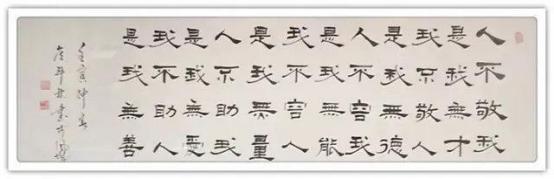 人不敬我
是我無才
我不敬人
是我無德
人不容我
是我無能
我不容人
是我無量
人不助我
是我無爲
我不助人
是我無善
壬寅仲春